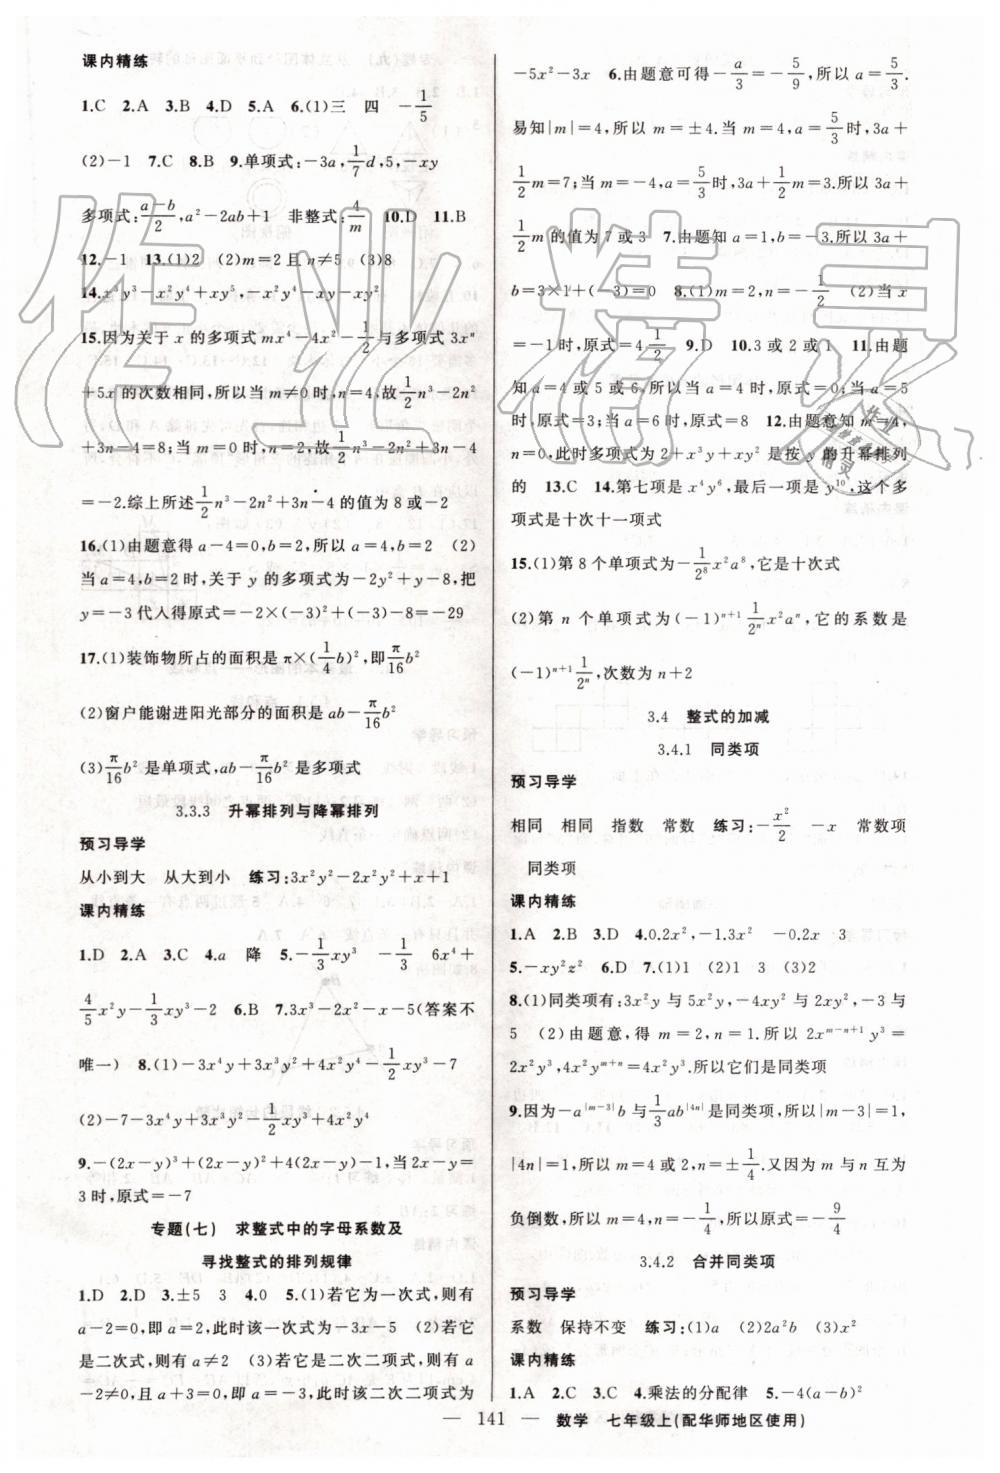 课内精练
1.C 2.A 3.B 4.D 5.A 6.(1)三 四 -1/5
(2)-1 7.C 8.B 9.单项式:-3a,1/7 d,5,-xy
多项式:(a-b)/2,a²-2ab+1 非整式:4/m 10.D 11.B
12.-1 13.(1)2 (2)m=2且n≠5 (3)8
14.x³y³-x²y⁴+xy⁵,-x²y²-xy-xy²
15.因为关于x的多项式mx⁴-4x²-1/2与多项式3xⁿ
+5x的次数相同,所以当m≠0时,n=4,故1/2n³-2n²
+3n-4=8;当m=0时,n=2,故1/2n³-2n²+3n-4
=-2.综上所述1/2n³-2n²+3n-4的值为8或-2
16.(1)由题意得a-4=0,b=2,所以a=4,b=2 (2)
当a=4,b=2时,关于y的多项式为-2y²+y-8,把
y=-3代入得原式=-2×(-3)²+(-3)-8=-29
17.(1)装饰物所占的面积是π×(1/4b)²,即π/16b²
(2)窗户能谢进阳光部分的面积是ab-π/16b²
(3)π/16b²是单项式,ab-π/16b²是多项式
3.3.3 升幂排列与降幂排列
预习导学
从小到大 从大到小 练习:3x³y²-2x²y²+x+1
课内精练
1.D 2.A 3.C 4.a 降 5.-1/3xy³ -1/3 6x⁴+
4/5x²y-1/3xy³-2 6.B 7.3x³-2x²-x-5(答案不
唯一) 8.(1)-3x⁴y+3x³y²+3x²y⁴-1/2xy³-7
(2)-7-3x⁴y+3x³y²-1/2xy³+3x²y⁴
9.-(2x-y)³+(2x-y)²+4(2x-y)-1,当2x-y=
3时,原式=-7
专题(七) 求整式中的字母系数及
寻找整式的排列规律
1.D 2.D 3.±5 3 4.0 5.(1)若它为一次式,则有
a-2=0,即a=2,此时该一次式为-3x-5 (2)若
它是二次式,则有a≠2 (3)若它是二次二项式,则有a
-2≠0,且a+3=0,即a=-3,此时该二次二项式为
-5x²-3x 6.由题意可得-a/3=-5/9,所以a=5/3.
易知|m|=4,所以m=±4.当m=4,a=5/3时,3a+
1/2m=7;当m=-4,a=5/3时,3a+1/2m=3.所以3a+
1/2m的值为7或3 7.由题知a=1,b=-3.所以3a+
b=3×1+(-3)=0 8.(1)m=2,n=-1/2 (2)当x
=-1时,原式=4 1/2 9.D 10.3或2或1 11.由题
知a=4或5或6,所以当a=4时,原式=0;当a=5
时,原式=1;当a=6时,原式=8 12.由题意知m=4,
n=0,此时多项式为2+x³y-xy²是按y的升幂排列
的 13.C 14.第七项是x⁴y⁶,最后一项是y¹⁰,这个多
项式是十次十一项式
15.(1)第8个单项式为-1/2⁸x²a⁸,它是十次式
(2)第n个单项式为(-1)ⁿ⁺¹1/2ⁿx²aⁿ,它的系数是
(-1)ⁿ⁺¹1/2ⁿ,次数为n+2
3.4 整式的加减
3.4.1 同类项
预习导学
相同 相同 指数 常数 练习:-x²/3 -x 常数项
同类项
课内精练
1.A 2.B 3.D 4.0.2x²,-1.3x² -0.2x 3
5.-xy²z² 6.D 7.(1)1 (2)1 3 (3)2
8.(1)同类项有:3x²y与5x²y,-2xy²与2xy²,-3与
5 (2)由题意,得m=2,n=1.所以2xᵐ⁻ⁿ⁺¹y³=
2x²y³,4x²yᵐ⁺ⁿ=4x²y³,所以它们是同类项
9.因为-a^|m-3|b与1/3ab^|4n|是同类项,所以|m-3|=1,
|4n|=1,所以m=4或2,n=±1/4.又因为m与n互为
负倒数,所以m=4,n=-1/4,所以原式=-9/4
3.4.2 合并同类项
预习导学
系数 保持不变 练习:(1)a (2)2a²b (3)x²
课内精练
1.A 2.C 3.C 4.乘法的分配律 5.-4(a-b)²
— 141 — 数学 七年级上(配华师地区使用)